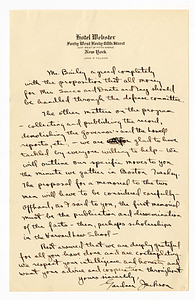 Hotel Webster
Forty West Forty-fifth Street
New York
Mr. Bailey agreed completely
with the proposition that all money
for Mrs. Sacco and Dante and Ines should
be handled through the defense committee.
The other matters on the program,
collecting and publishing the record,
demolishing the governor's and the Lowell
reports, etc. we are glad to have
tackled by everyone willing to help. We
will outline our specific moves to you
the minute we gather in Boston, Tuesday.
The proposal for a memorial to the two
men will have to be considered carefully.
Offhand, as I said to you, the first memorial
must be the publication and dissemination
of the facts - then, perhaps scholarships
in the Harvard Law School -
Rest assured that we are deeply grateful
for all you have done and are contemplating,
we respect your intelligence and honesty, and
want your advice and cooperation throughout
Yours sincerely,
Gardner Jackson